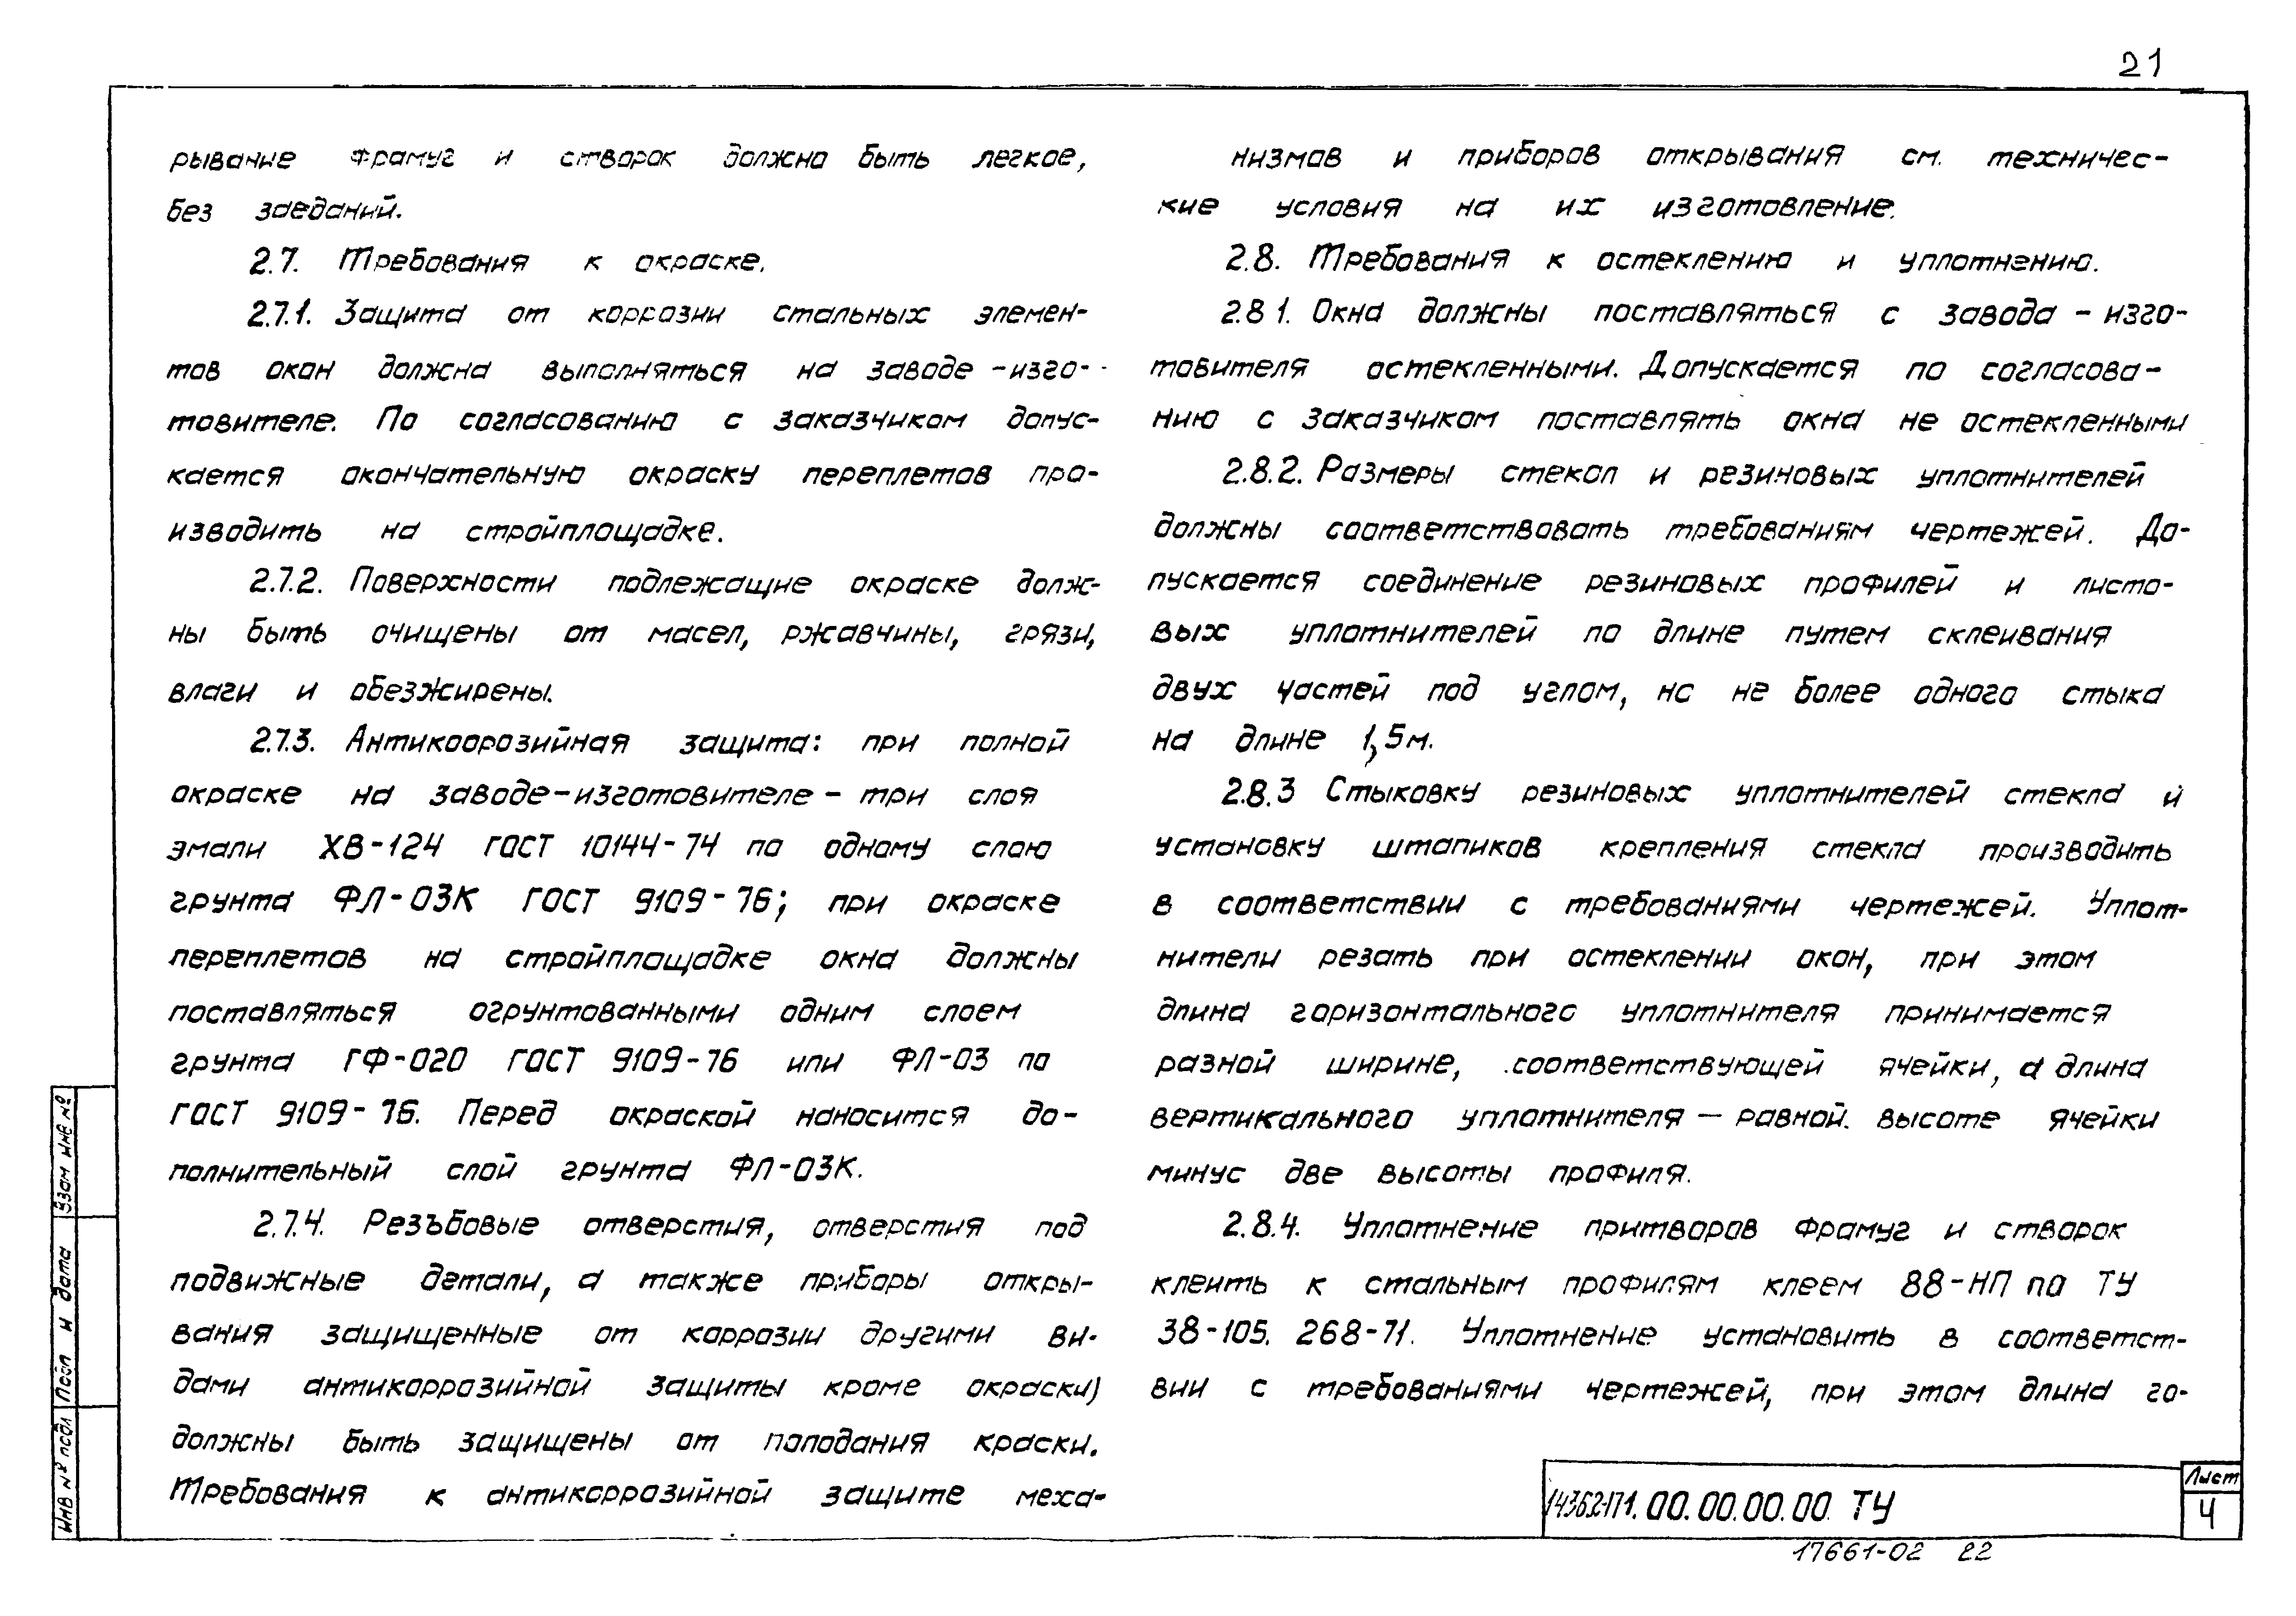 21
рывание фрамуг и створок должно быть легкое,
без заеданий.
2.7. Требования к окраске.
2.7.1. Защита от коррозии стальных элемен-
тов окон должна выполняться на заводе-изго-
товителе. По согласованию с заказчиком допус-
кается окончательную окраску переплетов про-
изводить на стройплощадке.
2.7.2. Поверхности подлежащие окраске долж-
ны быть очищены от масел, ржавчины, грязи,
влаги и обезжирены.
2.7.3. Антикоррозийная защита: при полной
окраске на заводе-изготовителе - три слоя
эмали ХВ-124 ГОСТ 10144-74 по одному слою
грунта ФЛ-03К ГОСТ 9109-76; при окраске
переплетов на стройплощадке окна должны
поставляться огрунтованными одним слоем
грунта ГФ-020 ГОСТ 9109-76 или ФЛ-03 по
ГОСТ 9109-76. Перед окраской наносится до-
полнительный слой грунта ФЛ-03К.
2.7.4. Резъбовые отверстия, отверстия под
подвижные детали, а также приборы откры-
вания защищенные от коррозии другими ви-
дами антикоррозийной защиты кроме окраски)
должны быть защищены от пoподания краски.
Требования к антикоррозийной защите меха-
низмов и приборов открывания см. техничес-
кие условия на их изготовление.
2.8. Требования к остеклению и уплотнению.
2.8 1. Окна должны поставляться с завода - изго-
товителя остекленными. Допускается по согласова-
нию с заказчиком поставлять окна не остекленными
2.8.2. Размеры стекол и резиновых уплотнителей
должны соответствовать требованиям чертежей. До-
пускается соединение резиновых профилей и листо-
вых уплотнителей по длине путем склеивания
двух частей под углом, но не более одного стыка
на длине 1,5м.
2.8.3 Стыковку резиновых уплотнителей стекла и
установку штапиков крепления стекла производить
в соответствии с требованиями чертежей. Уплот-
нители резать при остеклении окон, при этом
длина горизонтального уплотнителя принимается
разной ширине, соответствующей ячейки, а длина
вертикального уплотнителя — равной. высоте ячейки
минус две высоты профиля.
2.8.4. Уплотнение притворов фрамуг и створок
клеить к стальным профилям клеем 88-НП по ТУ
38-105. 268-71. Уплотнение установить в соответст-
вии с требованиями чертежей, при этом длина го-
Взам инв №
Подп и дата
Инв № подл
1.436.2-17.1.00.00.00.00 ТУ
Лист
4
17661-02 22